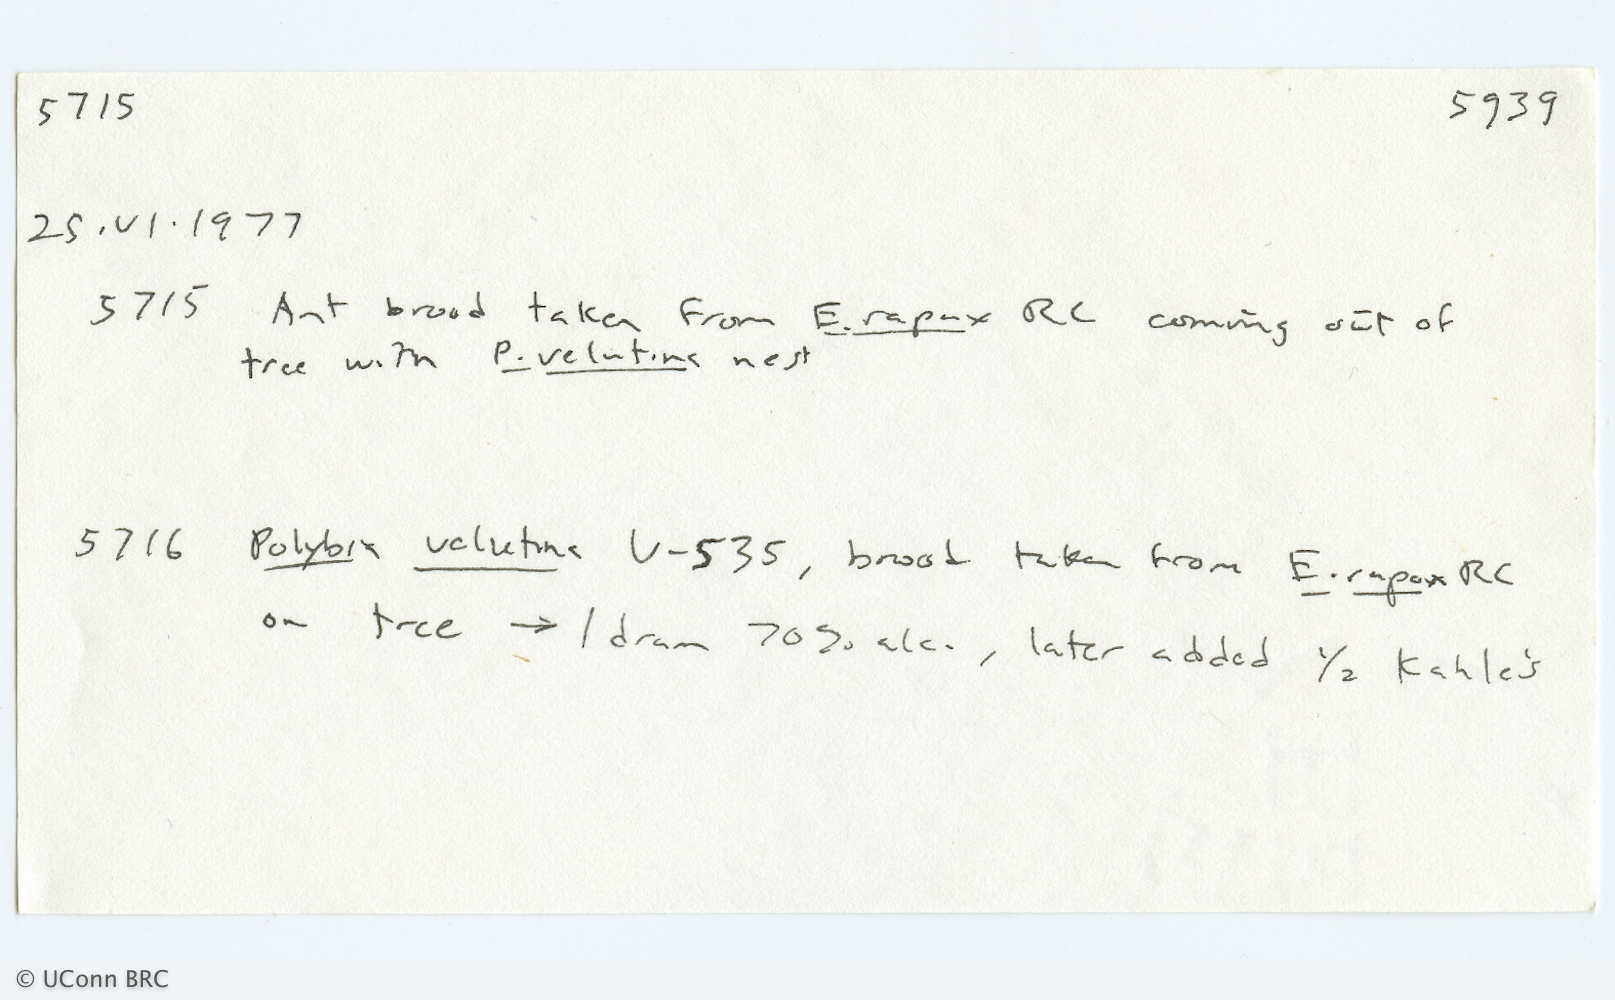 5715 5939
25.VI.1977
5715 Ant brood taken from E. rapax RC coming out of
tree with P. velutina nest
5716 Polybia velutina V-535, brood taken from E. rapax RC
on tree → 1 dram 70% alc., later added 1/2 Kahle's
© UConn BRC